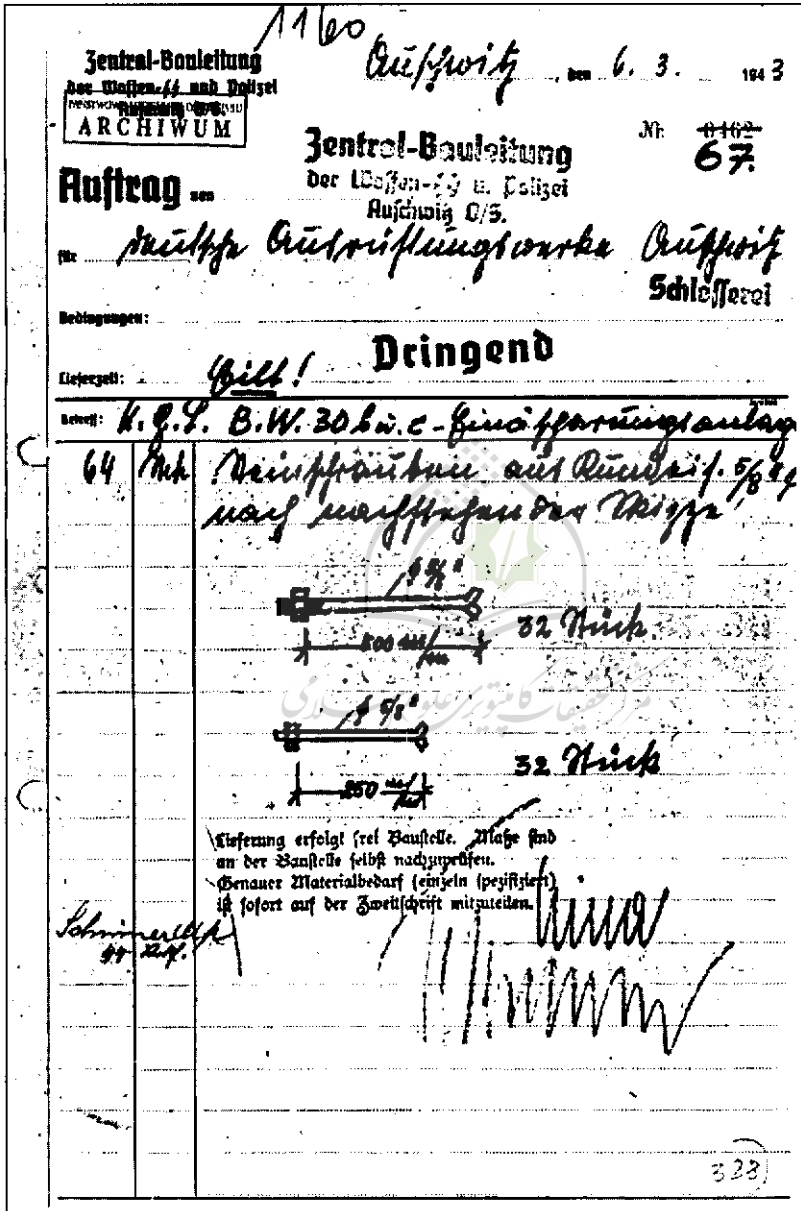 1160
Zentral-Bauleitung
der Waffen-SS und Polizei
Auschwitz O/S.
ARCHIWUM
Auschwitz, den 6. 3. 1943
Zentral-Bauleitung
der Waffen-SS u. Polizei
Auschwitz O/S.
Nr. 0162
67.
Auftrag von
für Deutsche Ausrüstungswerke Auschwitz
Schlosserei
Bedingungen:
Dringend
Lieferzeit: Eilt!
Betreff: K.G.L. B.W. 30 b u. c - Einäscherungsanlage
64 Stck. Steinschrauben aus Rundeis. 5/8"
nach nachstehender Skizze
5/8"
500 m/m
32 Stück.
5/8"
250 m/m
32 Stück
مرکز تحقیقات کامپیوتری علوم اسلامی
Lieferung erfolgt frei Baustelle. Maße sind
an der Baustelle selbst nachzuprüfen.
Genauer Materialbedarf (einzeln spezifiziert)
ist sofort auf der Zweitschrift mitzuteilen.
328